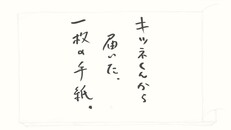 キツネくんから
届いた、
一枚の手紙。